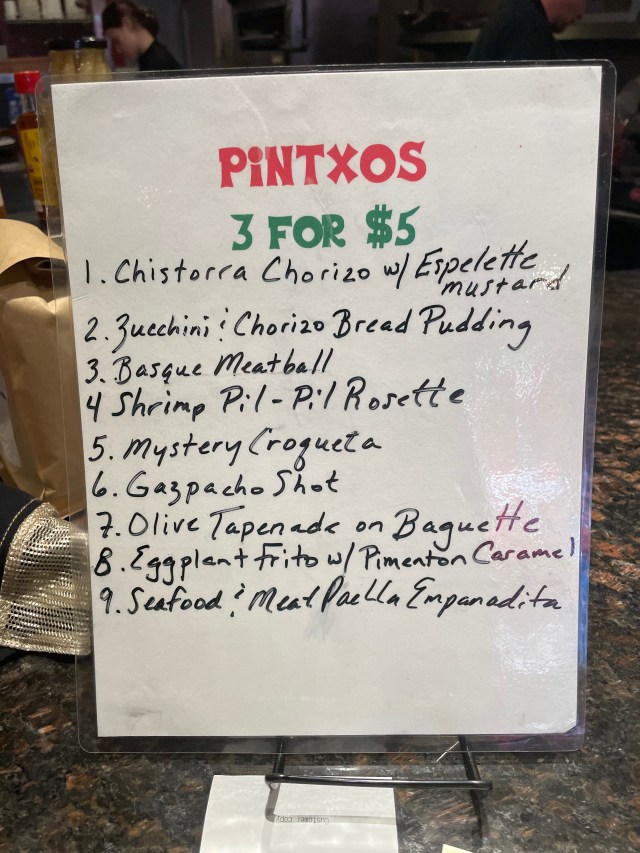 PiNTXOS
3 FOR $5
1. Chistorra Chorizo w/ Espelette
mustard
2. Zucchini & Chorizo Bread Pudding
3. Basque Meatball
4 Shrimp Pil-Pil Rosette
5. Mystery Croqueta
6. Gazpacho Shot
7. Olive Tapenade on Baguette
8. Eggplant Frito w/ Pimenton Caramel
9. Seafood & Meat Paella Empanadita
Customer Copy